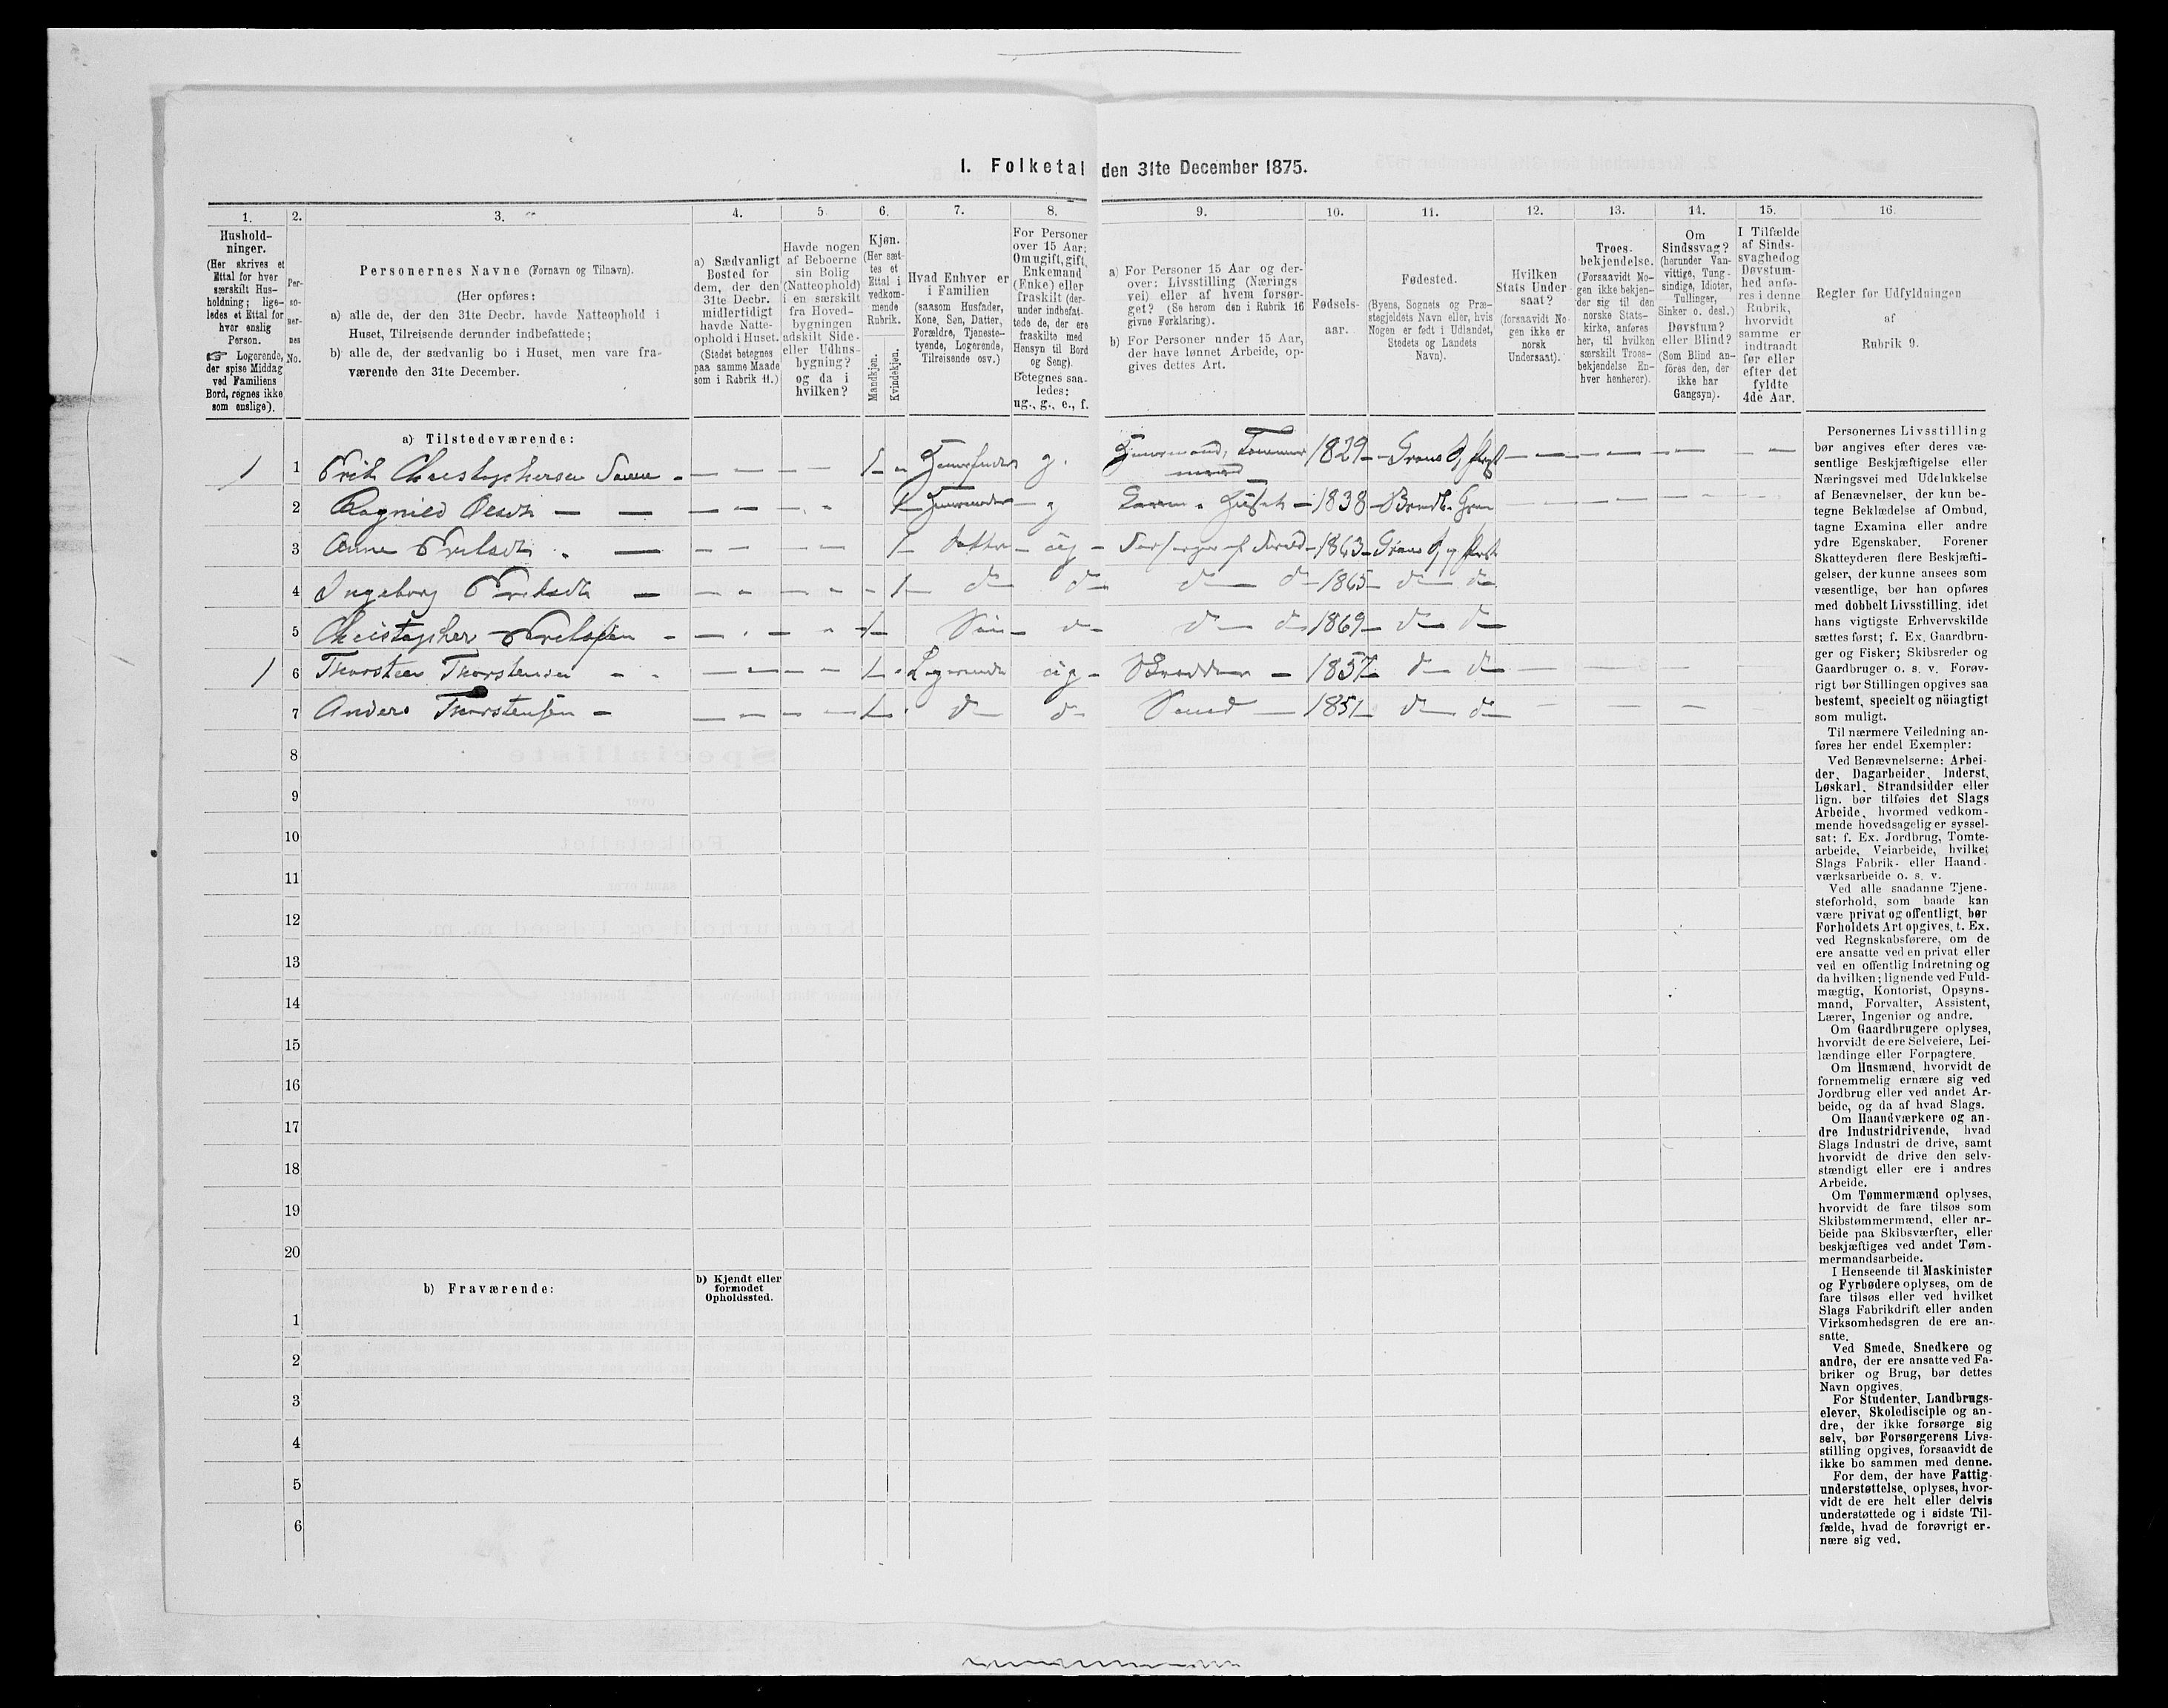 1. Folketal den 31te December 1875.
1. 2. 3. 4. 5. 6. 7. 8. 9. 10. 11. 12. 13. 14. 15. 16.
Hushold-
ninger.
(Her skrives et
Ettal for hver
særskilt Hus-
holdning; lige-
ledes et Ettal for
hver enslig
Person.
☞ Logerende,
der spise Middag
ved Familiens
Bord, regnes ikke
som enslige).
Per-
so-
ner-
nes
No.
Personernes Navne (Fornavn og Tilnavn).
(Her opføres:
a) alle de, der den 31te Decbr. havde Natteophold i
Huset, Tilreisende derunder indbefattede;
b) alle de, der sædvanlig bo i Huset, men vare fra-
værende den 31te December.
a) Sædvanligt
Bosted for
dem, der den
31te Decbr.
midlertidigt
havde Natte-
ophold i Huset.
(Stedet betegnes
paa samme Maade
som i Rubrik 11.)
Havde nogen
af Beboerne
sin Bolig
(Natteophold)
i en særskilt
fra Hoved-
bygningen
adskilt Side-
eller Udhus-
bygning?
og da i
hvilken?
Kjøn.
(Her sæt-
tes et
Ettal i
vedkom-
mende
Rubrik.
Mandkjøn.
Kvindekjøn.
Hvad Enhver er
i Familien
(saasom Husfader,
Kone, Søn, Datter,
Forældre, Tjeneste-
tyende, Logerende,
Tilreisende osv.)
For Personer
over 15 Aar:
Om ugift, gift,
Enkemand
(Enke) eller
fraskilt (der-
under indbefat-
tede de, der ere
fraskilte med
Hensyn til Bord
og Seng).
Betegnes saa-
ledes:
ug., g., e., f.
a) For Personer 15 Aar og der-
over: Livsstilling (Nærings
vei) eller af hvem forsør-
get? (Se herom den i Rubrik 16
givne Forklaring).
b) For Personer under 15 Aar,
der have lønnet Arbeide, op-
gives dettes Art.
Fødsels-
aar.
Fødested.
(Byens, Sognets og Præ-
stegjeldets Navn eller, hvis
Nogen er født i Udlandet,
Stedets og Landets
Navn).
Hvilken
Stats Under
saat?
(forsaavidt No-
gen ikke er
norsk
Undersaat).
Troes-
bekjendelse.
(Forsaavidt No-
gen ikke bekjen-
der sig til den
norske Stats-
kirke, anføres
her, til hvilken
særskilt Troes-
bekjendelse En-
hver henhører).
Om
Sindssvag?
(herunder Van-
vittige, Tung-
sindige, Idioter,
Tullinger,
Sinker o. desl.)
Døvstum?
eller Blind?
(Som Blind an-
føres den, der
ikke har
Gangsyn).
I Tilfælde
af Sinds-
svaghed og
Døvstum-
hed anfø-
res i denne
Rubrik,
hvorvidt
samme er
indtraadt
før eller
efter det
fyldte
4de Aar.
Regler for Udfyldningen
af
Rubrik 9.
a) Tilstedeværende:
1 1 Erik Christophersen 1 Huusfader g. Huusmand, Tømmer
mand 1829
2 Ragnild Olsdtr 1 Huusmoder g 1838
3 Anne Eriksdtr 1 datter ug 1863
4 Ingeborg Eriksdtr 1 do do do do 1865 do do
5 Christopher Eriksen 1 Søn do do do 1869 do do
1 6 Thorsten Thorstensen 1 Logerende ug Skrædder 1857 do do
7 Anders Thorstensen 1 do do Smed 1851 do do
8
9
10
11
12
13
14
15
16
17
18
19
20
b) Fraværende:
b) Kjendt eller
formodet
Opholdssted.
1
2
3
4
5
6
Personernes Livsstilling
bør angives efter deres væ-
sentlige Beskjæftigelse eller
Næringsvei med Udelukkelse
af Benævnelser, der kun be-
tegne Beklædelse af Ombud,
tagne Examina eller andre
ydre Egenskaber. Forener
Skatteyderen flere Beskjæfti-
gelser, der kunne ansees som
væsentlige, bør han opføres
med dobbelt Livsstilling, idet
hans vigtigste Erhvervskilde
sættes først; f. Ex. Gaardbru-
ger og Fisker; Skibsreder og
Gaardbruger o. s. v. Forøv-
rigt bør Stillingen opgives saa
bestemt, specielt og nöiagtigt
som muligt.
Til nærmere Veiledning an-
føres her endel Exempler:
Ved Benævnelserne: Arbei-
der, Dagarbeider, Inderst,
Løskarl, Strandsidder eller
lign. bør tilføies det Slags
Arbeide, hvormed vedkom-
mende hovedsagelig er syssel-
sat; f. Ex. Jordbrug, Tomte-
arbeide, Veiarbeide, hvilket
Slags Fabrik- eller Haand-
værksarbeide o. s. v.
Ved alle saadanne Tjene-
steforhold, som baade kan
være privat og offentligt, bør
Forholdets Art opgives, t. Ex.
ved Regnskabsførere, om de
ere ansatte ved en privat eller
ved en offentlig Indretning og
da hvilken; lignende ved Fuld-
mægtig, Kontorist, Opsyns-
mand, Forvalter, Assistent,
Lærer, Ingeniør og andre.
Om Gaardbrugere oplyses,
hvorvidt de ere Selveiere, Lei-
lændinge eller Forpagtere.
Om Husmænd, hvorvidt de
fornemmelig ernære sig ved
Jordbrug eller ved andet Ar-
beide, og da af hvad Slags.
Om Haandværkere og an-
dre Industridrivende, hvad
Slags Industri de drive, samt
hvorvidt de drive den selv-
stændigt eller ere i andres
Arbeide.
Om Tømmermænd oplyses,
hvorvidt de fare tilsøs som
Skibstømmermænd, eller ar-
beide paa Skibsværfter, eller
beskjæftiges ved andet Tøm-
mermandsarbeide.
I Henseende til Maskinister
og Fyrbødere oplyses, om de
fare tilsøs eller ved hvilket
Slags Fabrikdrift eller anden
Virksomhedsgren de ere an-
satte.
Ved Smede, Snedkere og
andre, der ere ansatte ved Fa-
briker og Brug, bør dettes
Navn opgives.
For Studenter, Landbrugs-
elever, Skoledisciple og an-
dre, der ikke forsørge sig
selv, bør Forsørgerens Livs-
stilling opgives, forsaavidt de
ikke bo sammen med denne.
For dem, der have Fattig-
understøttelse, oplyses, hvor-
vidt de ere helt eller delvis
understøttede og i sidste Til-
fælde, hvad de forøvrigt er-
nære sig ved.